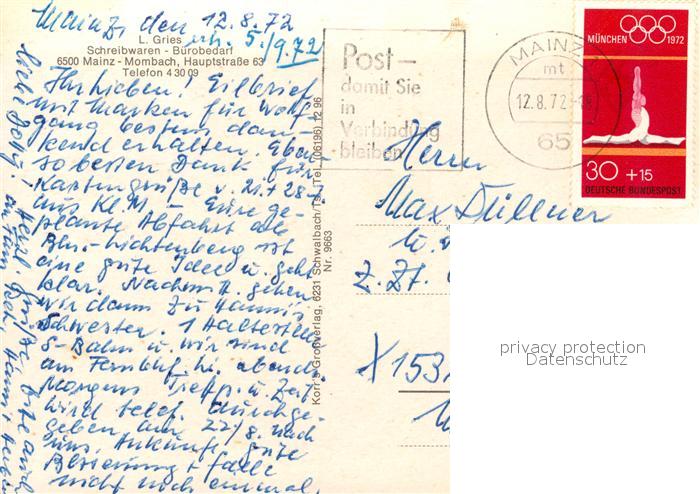 Mainz, den 12.8.72
5./9.72
L. Gries
Schreibwaren - Bürobedarf
6500 Mainz - Mombach, Hauptstraße 63
Telefon 4 30 09
Ihr Lieben! Eilbrief
mit Marken für Wolf-
gang bestens dan-
kend erhalten. Eben-
so besten Dank für
Kartengrüße v. 21. + 28.
aus Kl. M. - Eure ge-
plante Abfahrt ab
Bhn.-Lichtenberg ist
eine gute Idee u. geht
klar. Nachmitt. gehen
wir dann zu Hannis
Schwester. 1 Haltestelle
S-Bahn u. wir sind
am Fernbhf. hi. abend.
Morgens Treffp. u. Zeit
wird telef. durchge-
geben am 22./8. nach
uns. Ankunft. gute
Besserung + falle
nicht noch einmal,
Korr's Großverlag, 6231 Schwalbach/Ts. (Tel. (06196) 12 96
Nr. 9663
Post-
damit Sie
in
Verbindung
bleiben
MAINZ
mt
12.8.72
65
MÜNCHEN 1972
30 + 15
DEUTSCHE BUNDESPOST
Herrn
Max Düllner
z. Zt.
X 153
privacy protection
Datenschutz